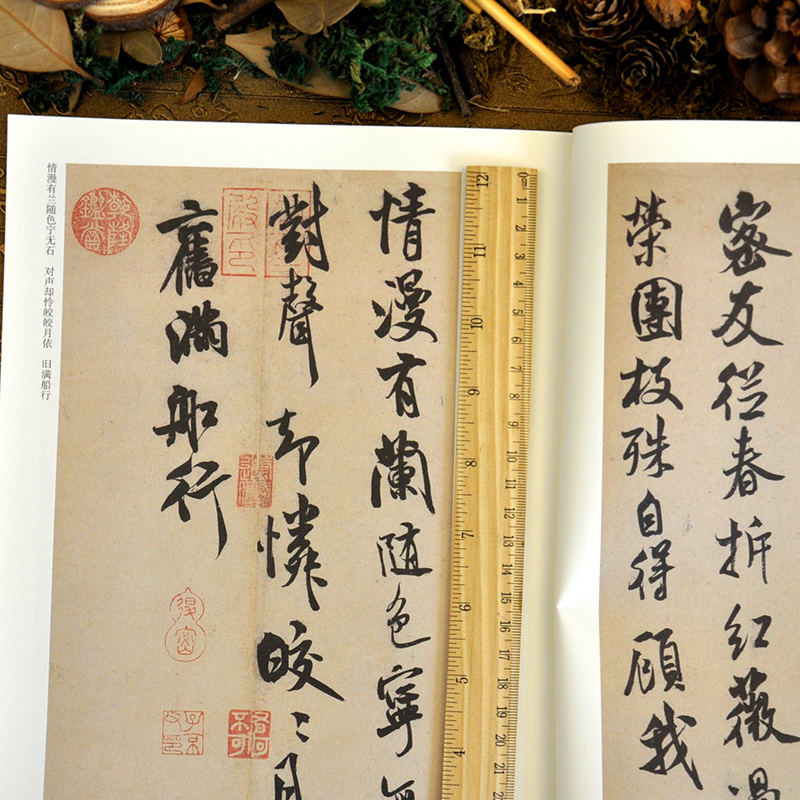 密友從春拆紅薇過
榮團枝殊自得顧我
情漫有蘭随色寧無
對聲却憐皎〻月
舊滿船行
情漫有兰随色宁无石 对声却怜皎皎月依 旧满船行
乾隆鑑賞
12 11 10 9 8 7 6 5 4
0 1 2 3 4 5 6 7 8 9 10 11 12 13 14 15 16 17 18 19 20 21